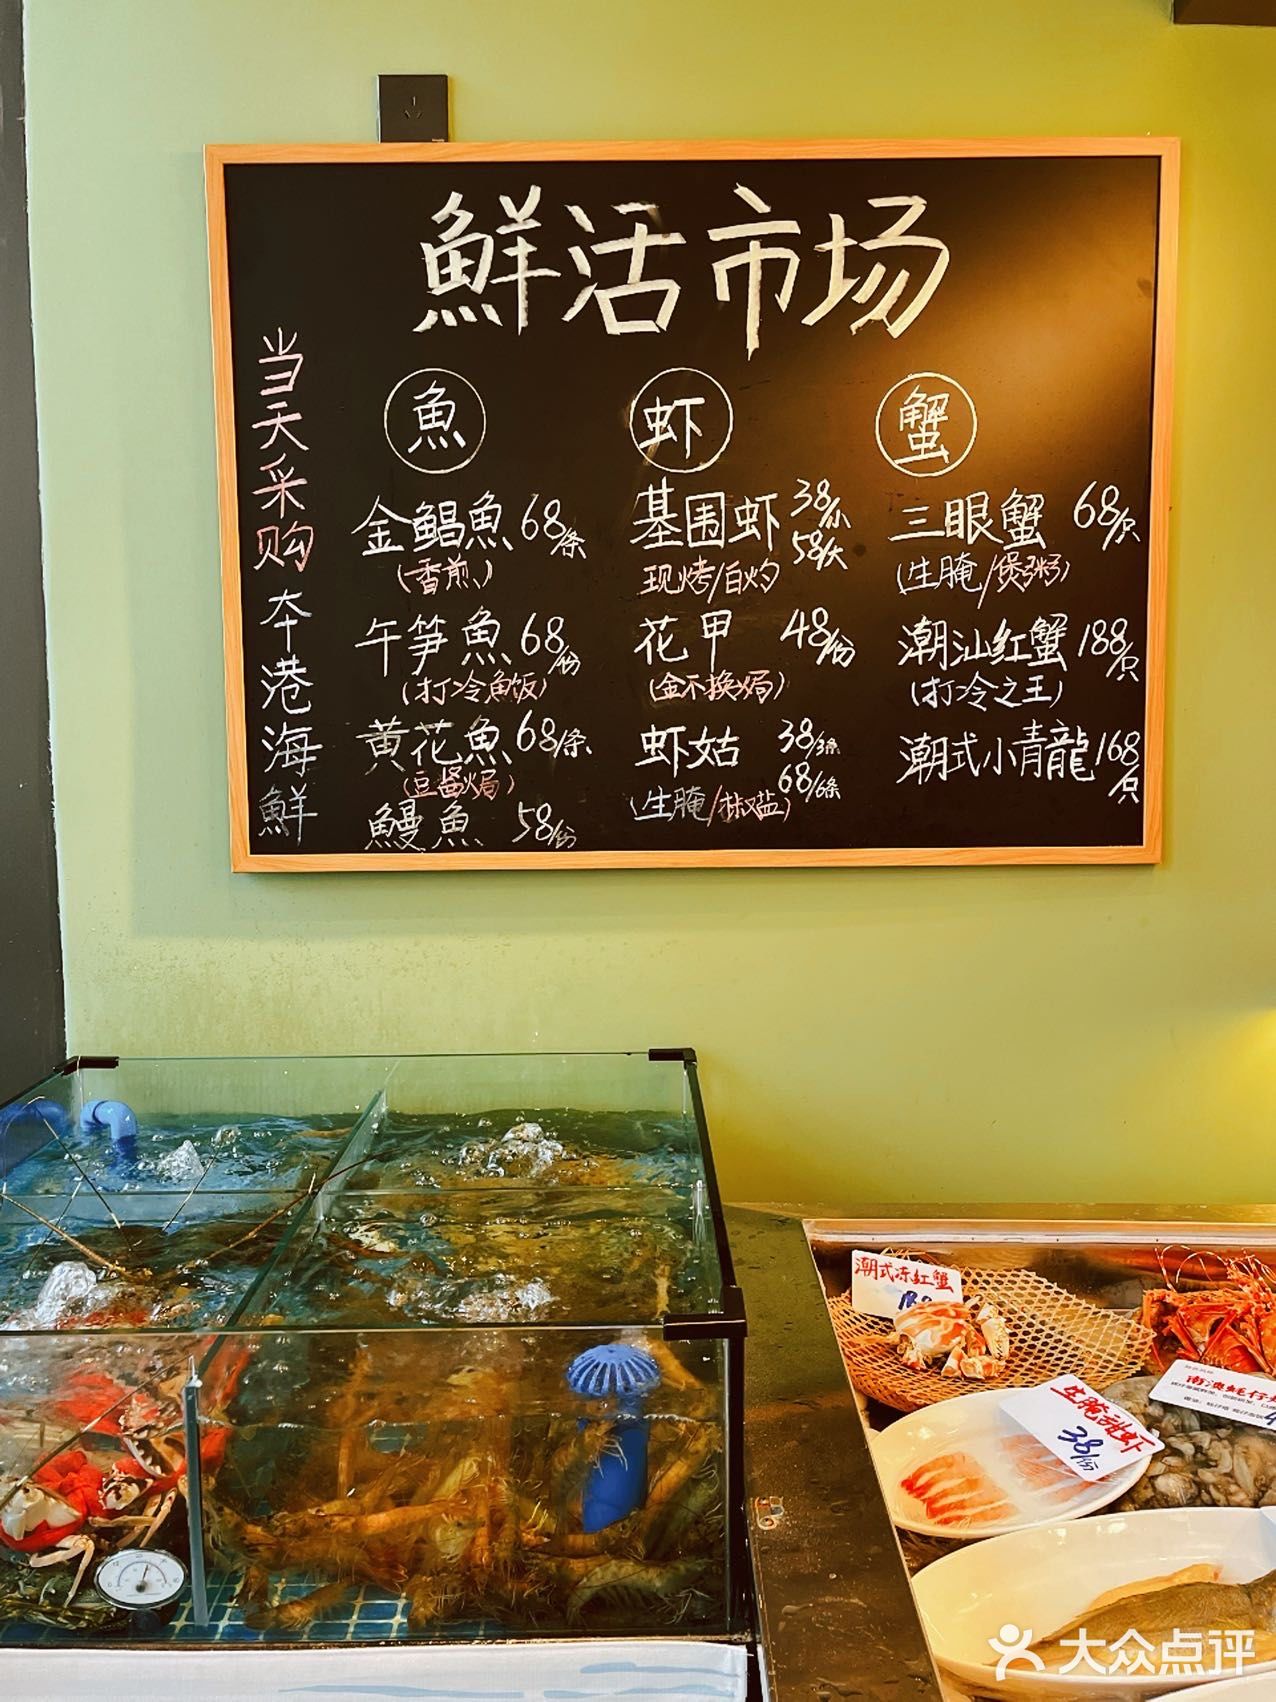 鮮活市场
当天采购本港海鮮
魚
金鲳魚 68/条
(香煎)
午笋魚 68/份
(打冷魚饭)
黄花魚 68/条
(豆酱焗)
鰻魚 58/份
虾
基围虾 38/小
58/大
现烤/白灼
花甲 48/份
(金不换焗)
虾姑 38/3条
68/6条
(生腌/椒盐)
蟹
三眼蟹 68/只
(生腌/煲粥)
潮汕红蟹 188/只
(打冷之王)
潮式小青龍 168/只
潮式冻红蟹
生腌甜虾
38/份
南澳蚝仔
大众点评